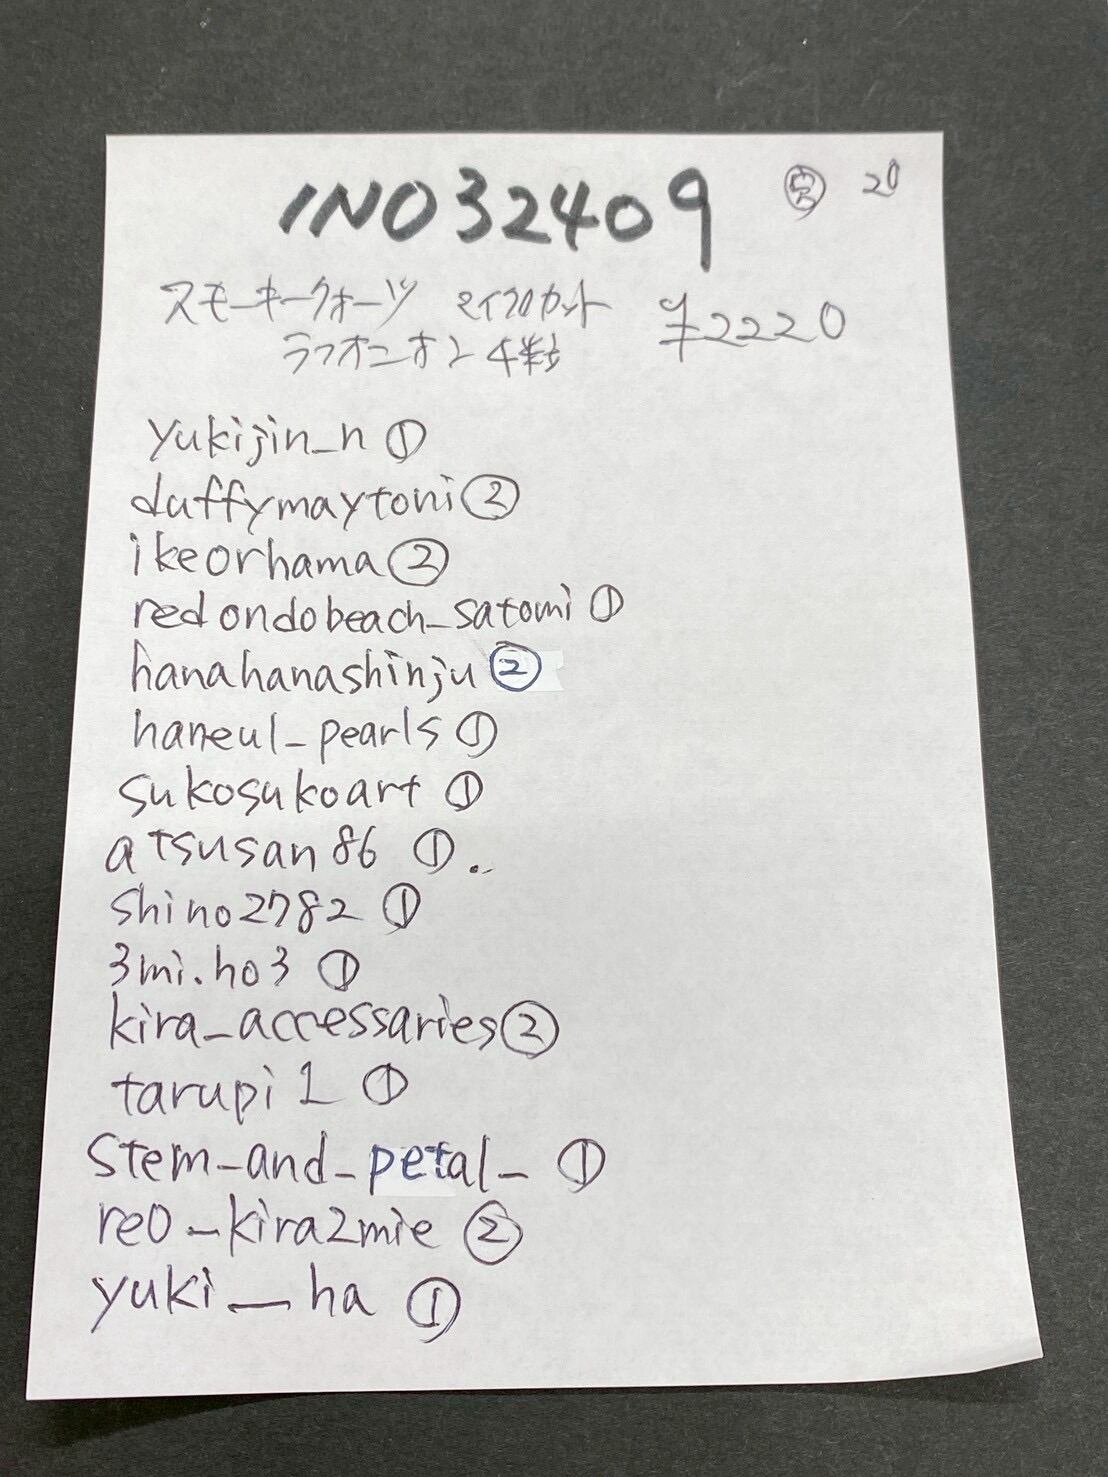 INO32409 20
スモーキークォーツ マイクロカット ¥2220
ラフオニオン 4粒
yukijin_n ①
duffymaytoni ②
ikeorhama ②
redondobeach_satomi ①
hanahanashinju ②
haneul_pearls ①
sukosukoart ①
atsusan86 ①.
shino2782 ①
3mi.ho3 ①
kira_accessaries ②
tarupi1 ①
stem_and_petal_ ①
reo_kira2mie ②
yuki__ha ①